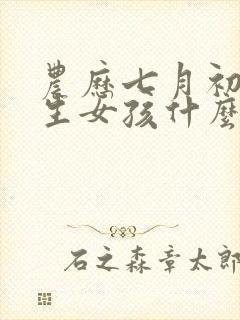 農歷七月初
生女孩什麼
石之森章太郎